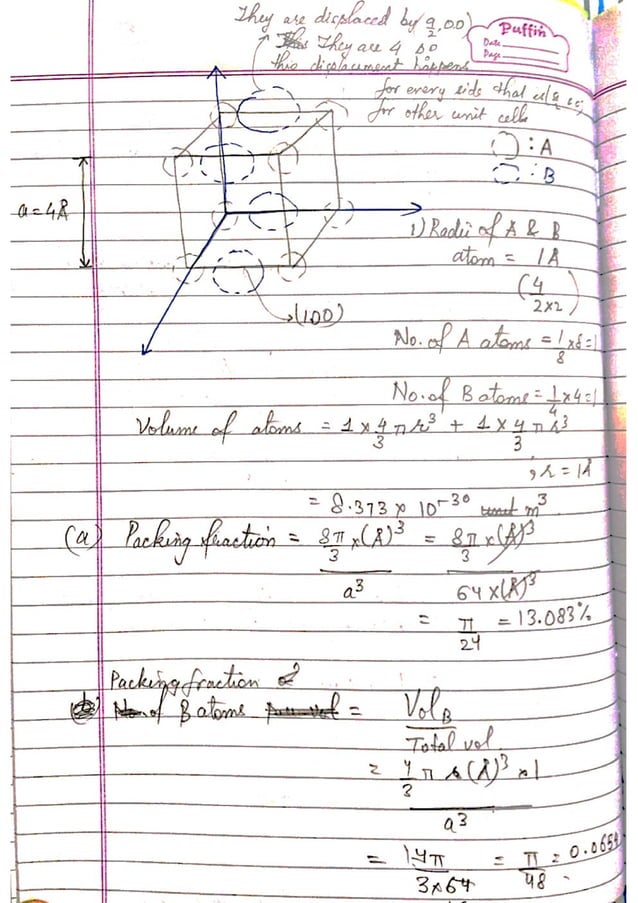 They are displaced by (a/2,0,0)
Puffin
Date
Page
They are 4 so
this displacement happens
for every side that
for other unit cells
: A
: B
a = 4Å
1) Radii of A & B
atom = 1Å
(4/2×2)
(100)
No. of A atoms = 1/8 × 8 = 1
No. of B atoms = 1/4 × 4 = 1
Volume of atoms = 1 × 4/3 π r³ + 1 × 4/3 π r³
, r = 1Å
= 8.373 × 10⁻³⁰ m³
(a) Packing fraction = 8π/3 × (Å)³ / a³ = 8π/3 × (Å)³ / 64 × (Å)³
= π/24 = 13.083%
Packing fraction of
B atoms = Vol_B / Total vol
= 4/3 π (Å)³ × 1 / a³
= 1·4π / 3×64 = π/48 = 0.0654